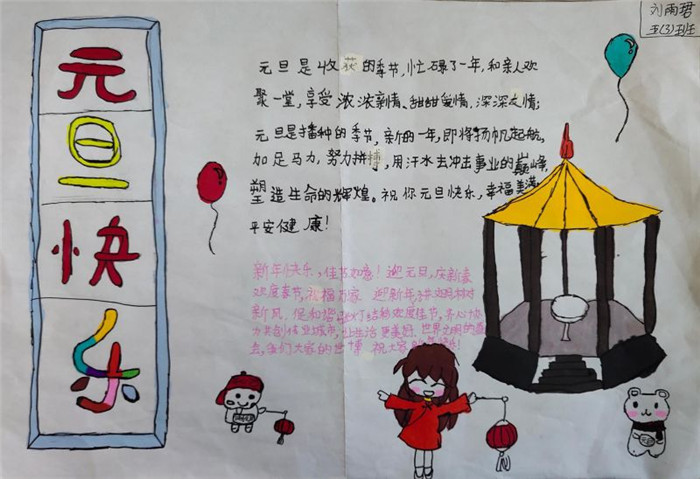 刘雨珺
五(3)班
元旦快乐
元旦是收获的季节,忙碌了一年,和亲人欢
聚一堂,享受浓浓亲情、甜甜爱情、深深友情;
元旦是播种的季节,新的一年,即将扬帆起航,
加足马力,努力拼搏,用汗水去冲击事业的巅峰,
塑造生命的辉煌。祝你元旦快乐,幸福美满,
平安健康!
新年快乐,佳节如意!迎元旦,庆新春
欢度春节,祝福万家 迎新年
新风,促和谐 灯结彩欢度佳节,齐心协
力共创 城市,让生活更美好、世界文明的盛
会,我们大家的世博 祝大家